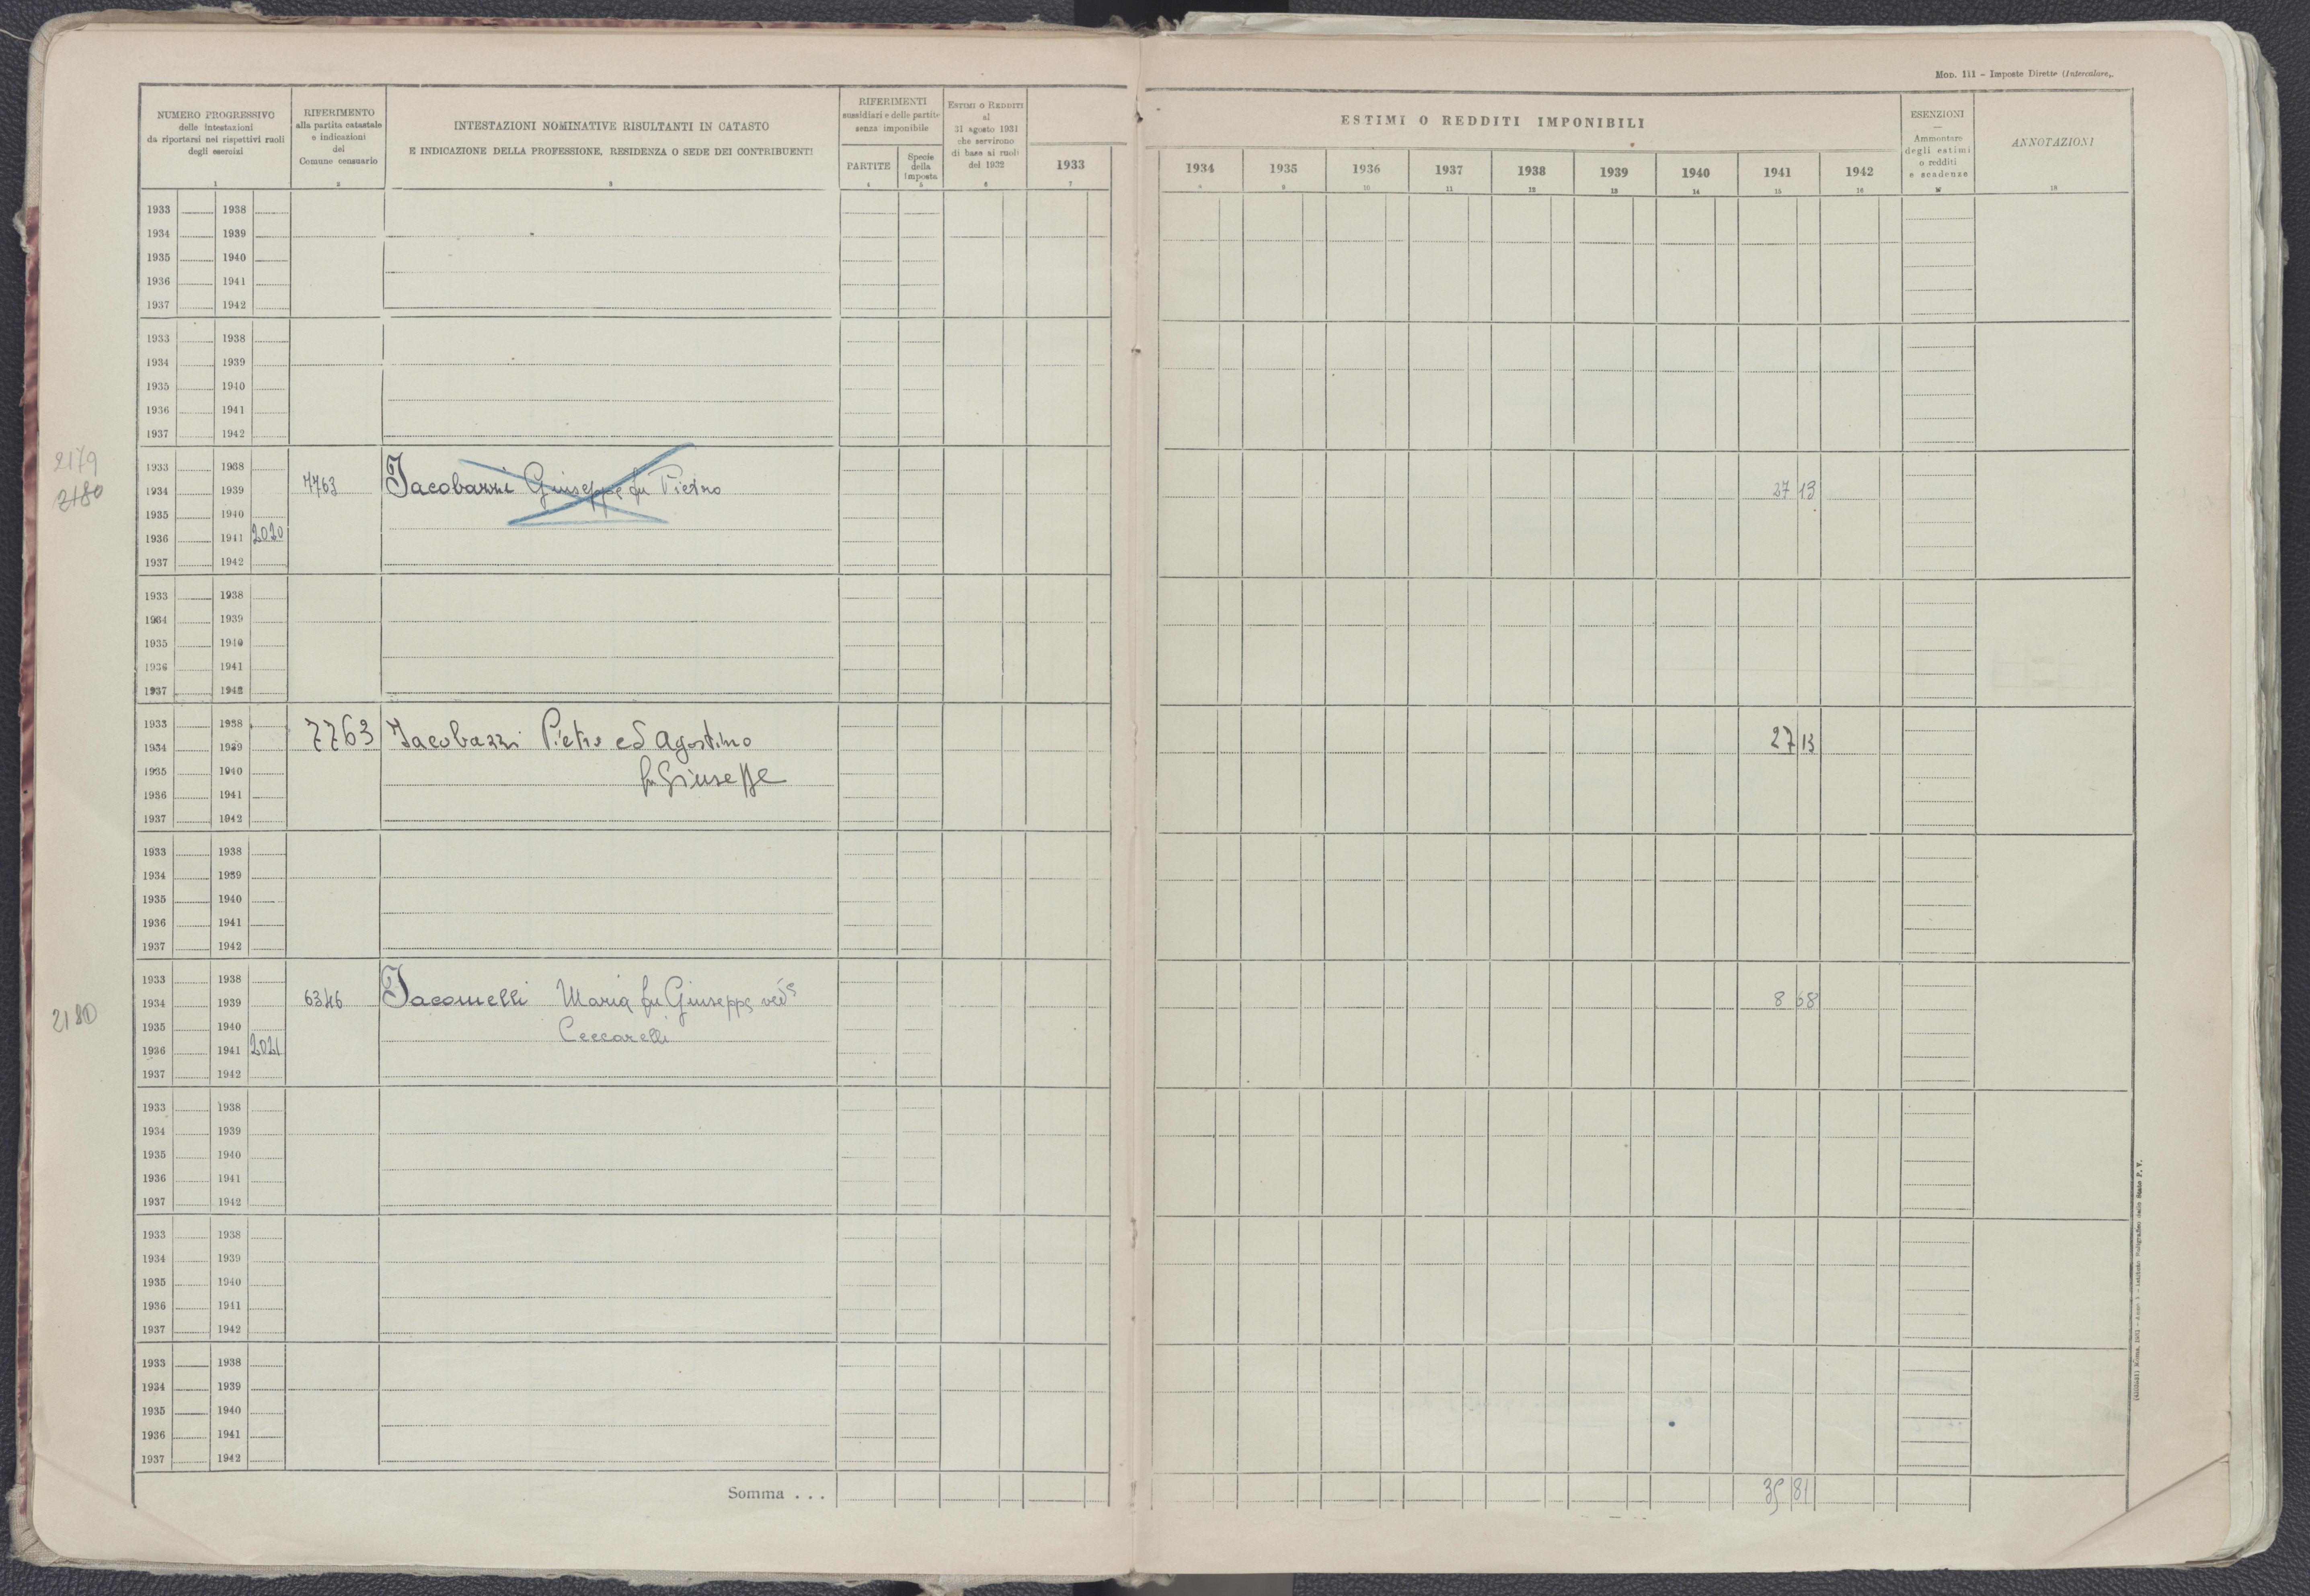 MOD. 111 - Imposte Dirette (Intercalare).
NUMERO PROGRESSIVO
delle intestazioni
da riportarsi nei rispettivi ruoli
degli esercizi
1
RIFERIMENTO
alla partita catastale
e indicazioni
del
Comune censuario
2
INTESTAZIONI NOMINATIVE RISULTANTI IN CATASTO
E INDICAZIONE DELLA PROFESSIONE, RESIDENZA O SEDE DEI CONTRIBUENTI
3
RIFERIMENTI
sussidiari e delle partite
senza imponibile
PARTITE
4
Specie
della
Imposta
5
ESTIMI O REDDITI
al
31 agosto 1931
che servirono
di base ai ruoli
del 1932
6
1933
7
ESTIMI O REDDITI IMPONIBILI
1934 1935 1936 1937 1938 1939 1940 1941 1942
8 9 10 11 12 13 14 15 16
ESENZIONI
—
Ammontare
degli estimi
o redditi
e scadenze
17
ANNOTAZIONI
18
1933 1938
1934 1939
1935 1940
1936 1941
1937 1942
1933 1938
1934 1939
1935 1940
1936 1941
1937 1942
2179
2180
1933 1938
1934 1939 7763 Jacobazzi Giuseppe fu Pietro 27 13
1935 1940
1936 1941 2020
1937 1942
1933 1938
1934 1939
1935 1940
1936 1941
1937 1942
1933 1938
1934 1939 7763 Jacobazzi Pietro ed Agostino 27 13
1935 1940 fu Giuseppe
1936 1941
1937 1942
1933 1938
1934 1939
1935 1940
1936 1941
1937 1942
1933 1938
1934 1939 6346 Jacomelli Maria fu Giuseppe ved. 8 68
2180
1935 1940 Ceccarelli
1936 1941 2021
1937 1942
1933 1938
1934 1939
1935 1940
1936 1941
1937 1942
1933 1938
1934 1939
1935 1940
1936 1941
1937 1942
1933 1938
1934 1939
1935 1940
1936 1941
1937 1942
Somma . . . 35 81